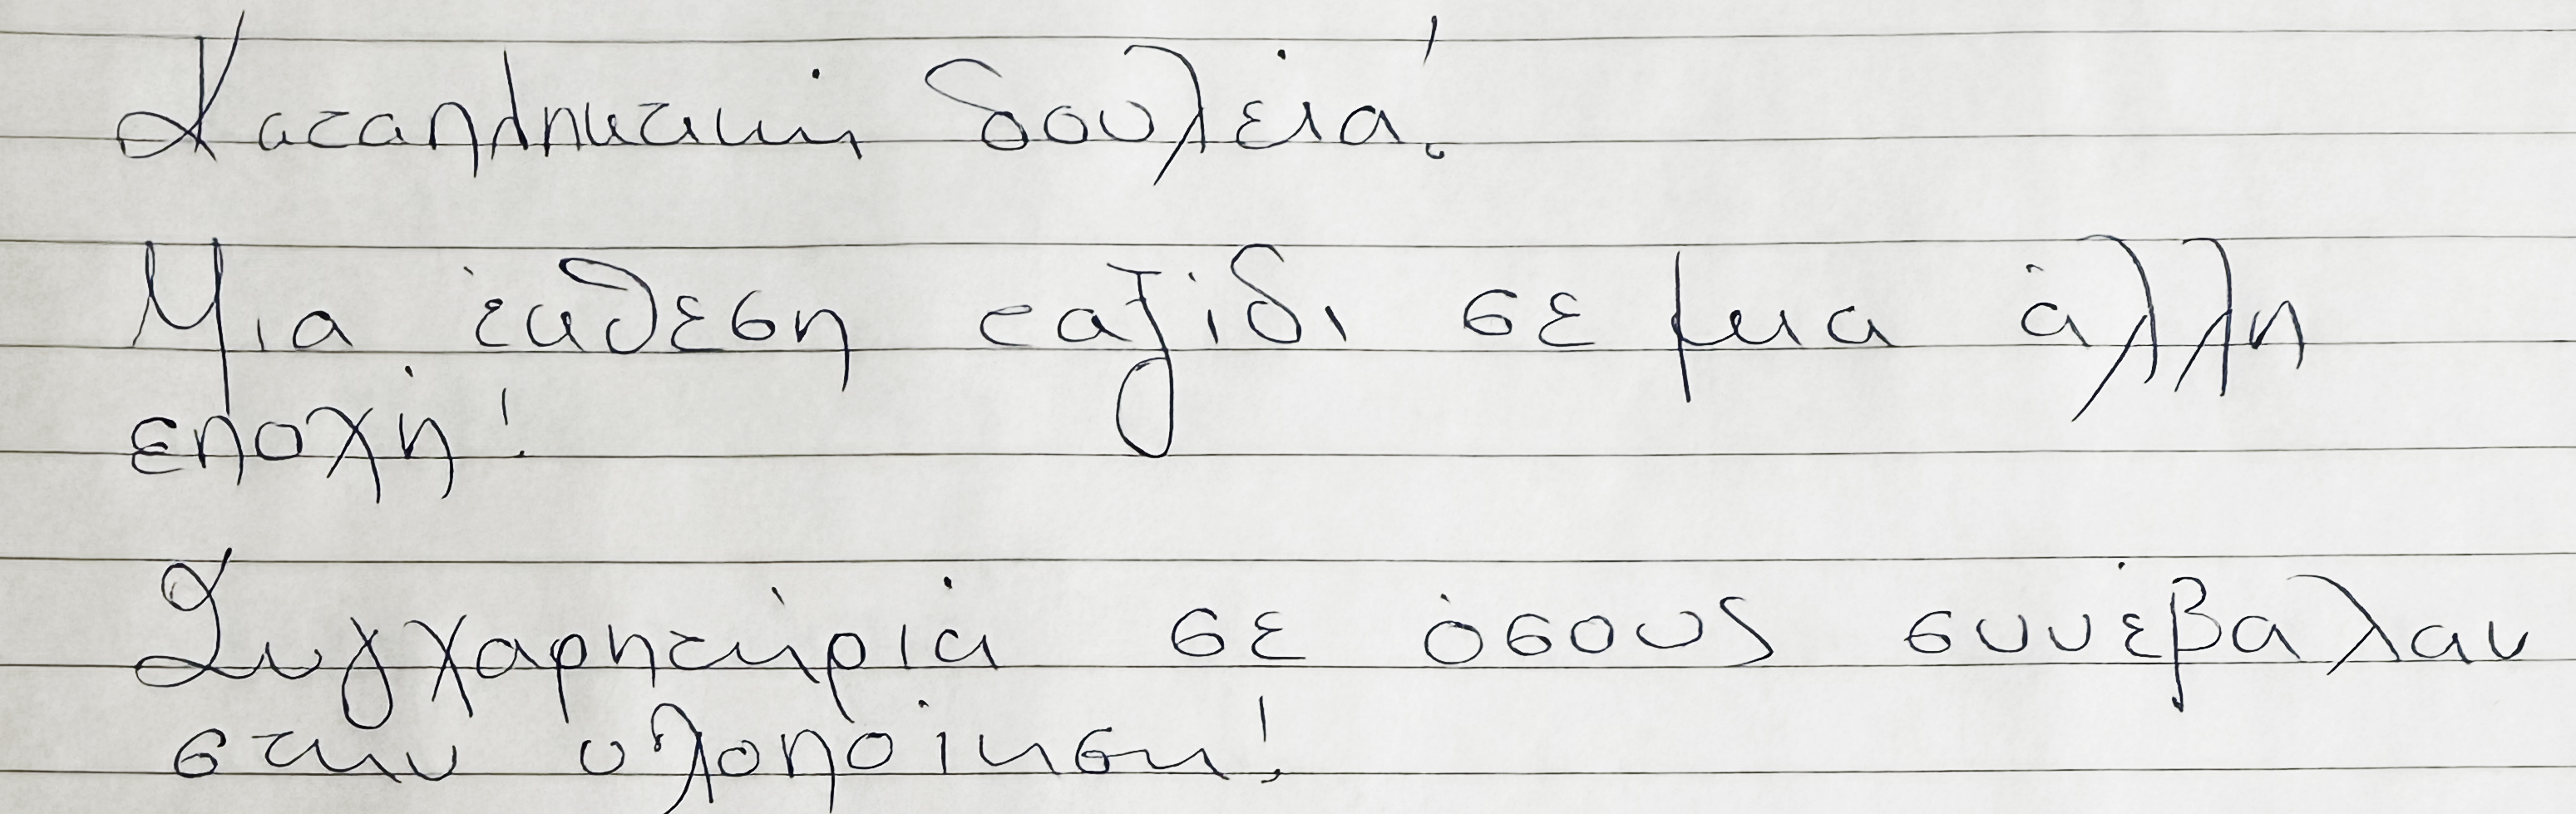 Καταπληκτική δουλειά!
Μια έκθεση ταξίδι σε μια άλλη
εποχή!
Συγχαρητήρια σε όσους συνέβαλαν
στην υλοποίηση!